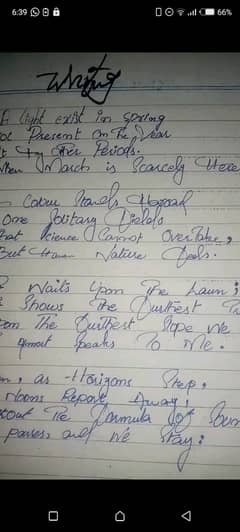 6:39
66%
Writing
A Light exist in spring
Not Present on The Year
At Any other Periods.
When March is Scarcely Here
A Colour Stands Abroad
One Solitary Fields
That Science Cannot Overtake,
But Human Nature Feels.
It Waits Upon The Lawn;
It Shows The Furthest
Upon The Furthest Slope We
It almost Speaks To Me.
as Horizons Step,
noons Report Away,
Without The Formula of Soun
passes, and We Stay: